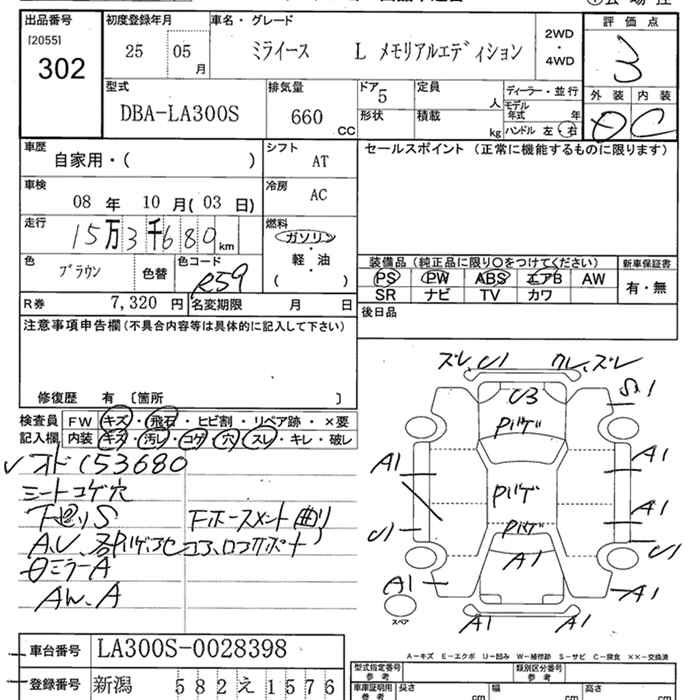 出品番号 初度登録年月 車名・グレード 評価点
[2055]
302
25 05 月 ミライース L メモリアルエディション 2WD ・ 4WD 3
型式 排気量 ドア 5 定員 人 ディーラー・並行 外装 内装
DBA-LA300S 660 CC 形状 積載 kg モデル年式 年 C
ハンドル 左 右
車歴 自家用・( ) シフト AT セールスポイント (正常に機能するものに限ります)
車検 08 年 10 月( 03 日) 冷房 AC
走行 15万3千680 km 燃料 ガソリン ・ 軽・油 ( )
色 ブラウン 色替 色コード R59 装備品 (純正品に限り○をつけてください) 新車保証書
PS PW ABS エアB AW 有・無
SR ナビ TV カワ
R券 7,320 円 名変期限 月 日 後日品
注意事項申告欄(不具合内容等は具体的に記入して下さい)
修復歴 有 [箇所 ]
検査員 記入欄 FW キズ・飛石・ヒビ割・リペア跡・×要
内装 キズ・汚レ・コゲ・穴・スレ・キレ・破レ
オド153680
シートコゲ穴
下廻りS
A、U
ミラーA
AW、A
ズレ、U1 ズレ
U3 S1
A1 A1
A1
U1 U1
A1
A1 A1
A1 A1
スペア
A-キズ E-エクボ U-凹み W-補修跡 S-サビ C-腐食 ××-交換済
車台番号 LA300S-0028398
登録番号 新潟 582え1576
型式指定番号 参考 類別区分番号 参考
車庫証明用 参考 長さ cm 幅 cm 高さ cm